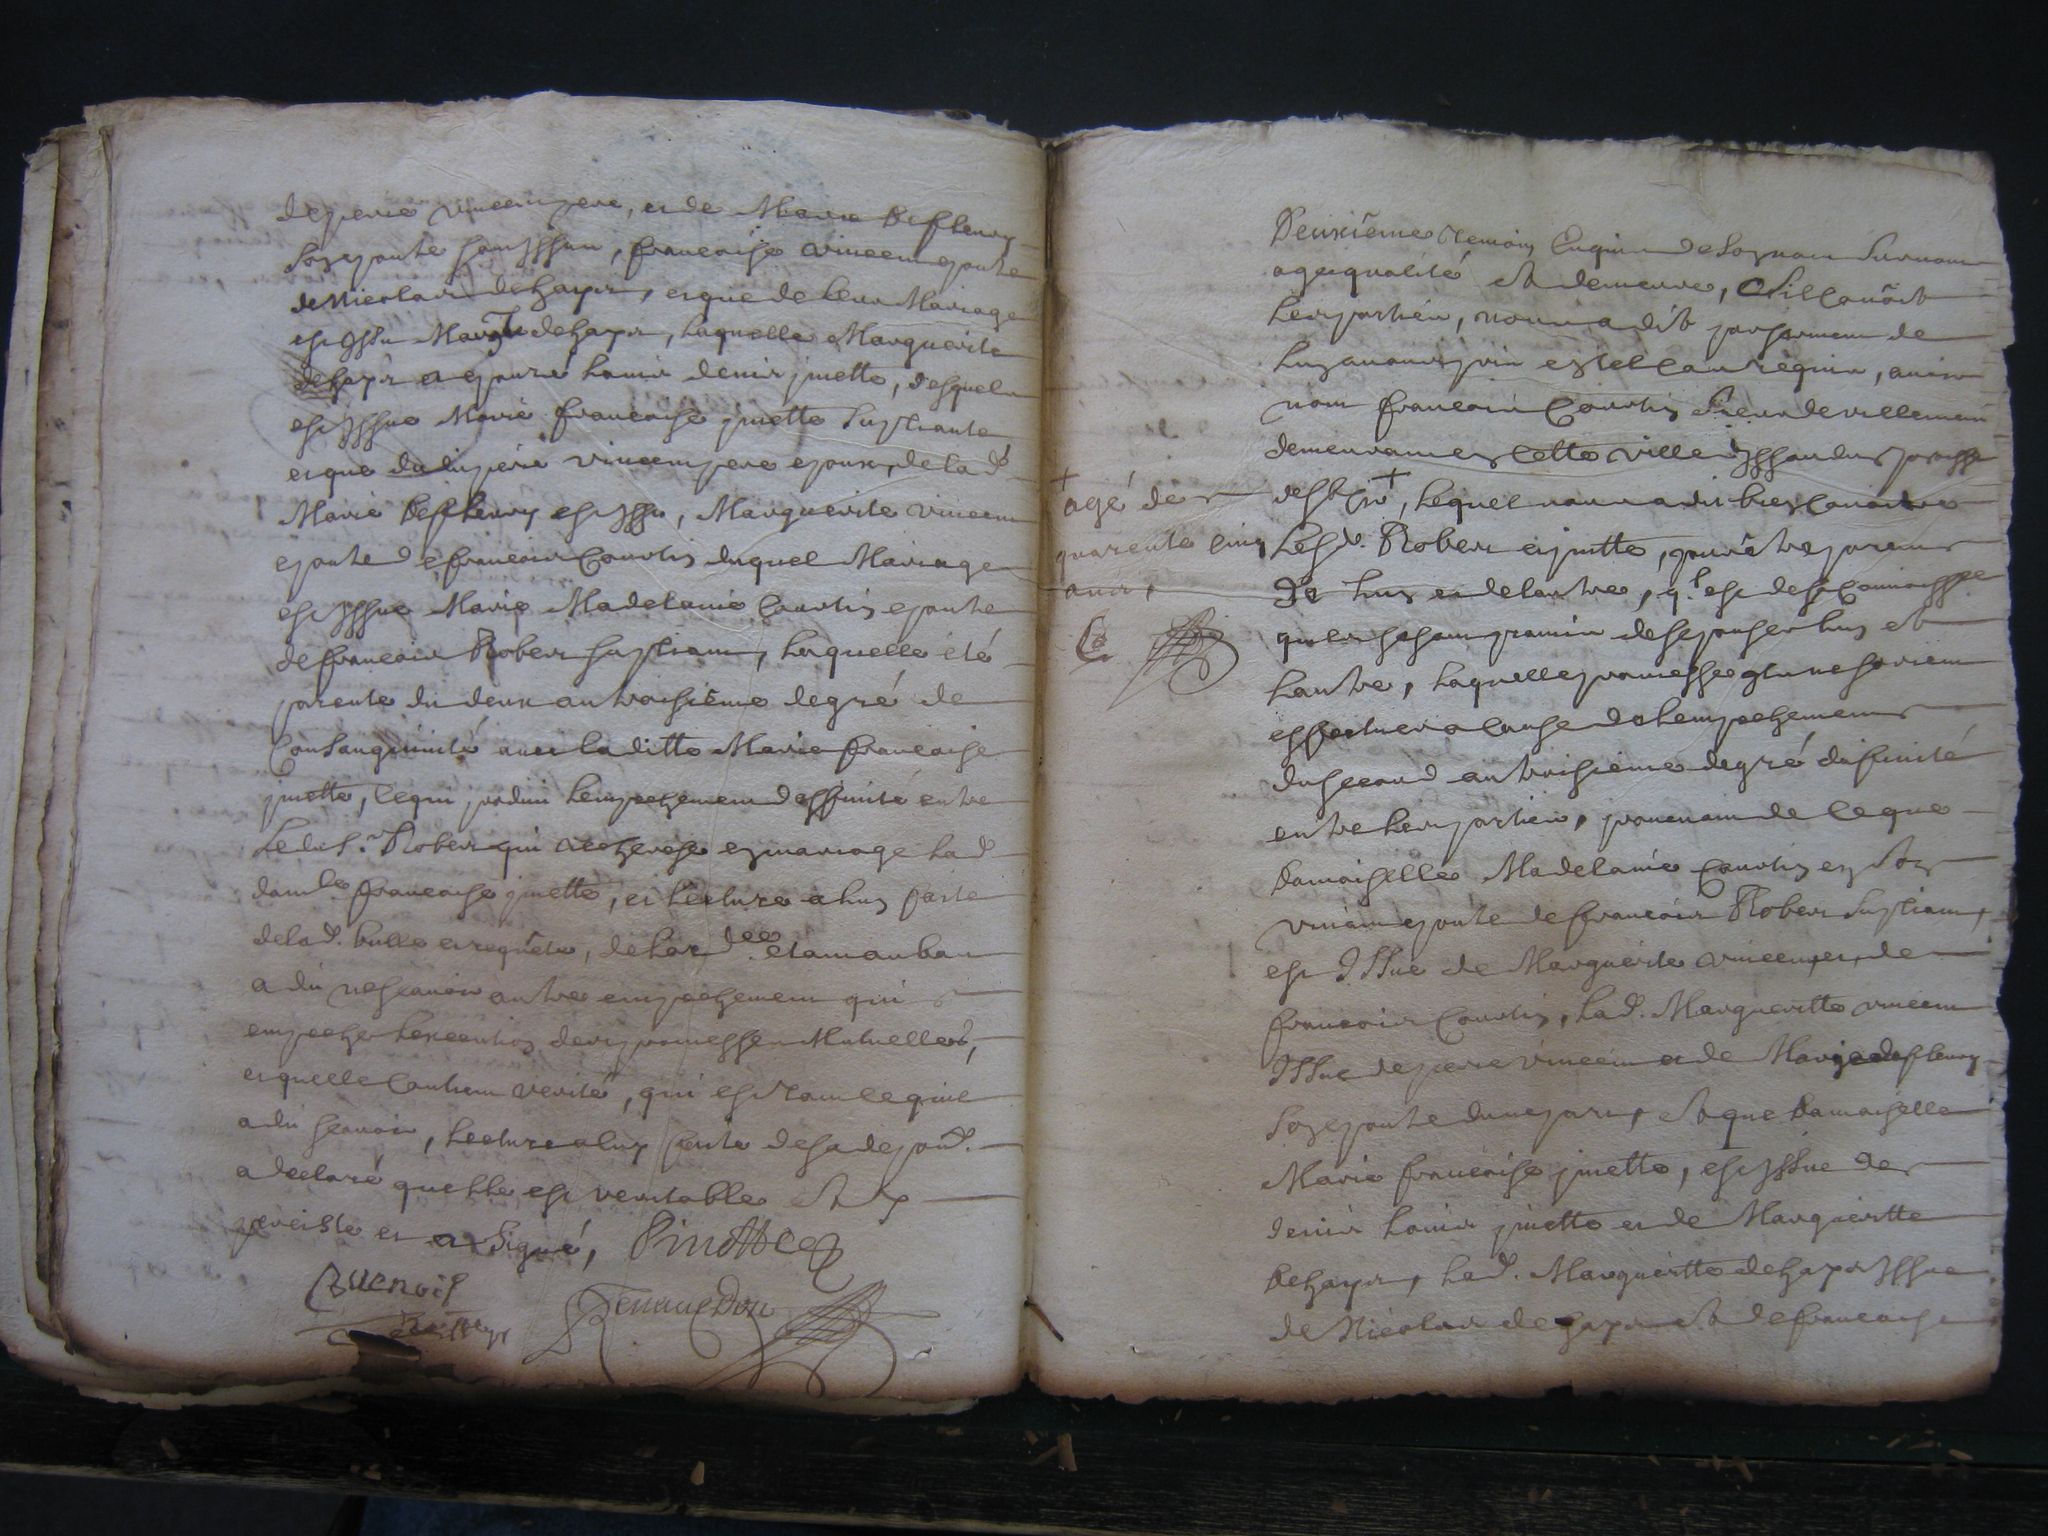 de pierre vincent pere, et de Marie Defleury
son epouse sont Issus, francoise vincent epouse
de Nicolas dehayes, et que de leur Mariage
est Issu Margte dehayes, laquelle Marguerite
dehayes a epousé Louis denis pinette, desquels
est Issue Marie francoise pinette supliante
et que dudit pierre vincent pere epoux, de lad
Marie Defleury est Issu, Marguerite vincent
epouse de francois Courtin duquel Mariage
est Issue Marie Madelaine Courtin epouse
de francois Robert supliant, laquelle été
parente du deux au troisiême degré de
Consanguinité avec laditte Marie francoise
pinette, ce qui produit lempechement daffinité entre
Ledit Sr Robert qui recherche en mariage lad
damle francoise pinette, et lecture a luy faite
de lad. bulle et requête, de lord. etant au bas
a dit ne scavoir autre empechement qui
empeche lexecution des promesses Mutuelles,
et quelle Contient verité, qui est tout ce quil
a dit scavoir, lecture a luy faite de sa depon.
a declaré quelle est veritable et y
persiste et a signé, Pinotte
Buenoist
RenaueDon
Deuxiême temoin Enquis de son nom surnom
age qualité et demeure, et sil Canoit
les parties, nous a dit par serment de
luy avoir pris estel Cas requis, avoir
nom francois Courtin Sieur de villemeni
demeurant en Cette ville dIssoudun paroisse
de St Cir +, lequel nous a dit bien Canoitre
Lesd. Robert et pinette, pour être parent
De luns et de lautre, ql est de sa Connoissce
quils se sont promis de sepouser lun et
lautre, laquelle promesse ils ne scavroient
effectuer a Cause de lempechement
du second au troisieme degré dafinité
entre les parties, provenant de Ce que
Damoiselle Madelaine Courtin en son
vivant epouse de francois Robert supliant,
est Issue de Marguerite vincent, et de
francois Courtin, lad. Margueritte vincent
Issue de pierre vincent et de Marie defleury
son epouse dune part, et que Damoiselle
Marie francoise pinette, est Issue de
denis Louis pinette et de Margueritte
Dehayes, lad. Margueritte dehayes Issue
de Nicolas dehayes et de francoise
+
agé de
quarente cinq
ans,